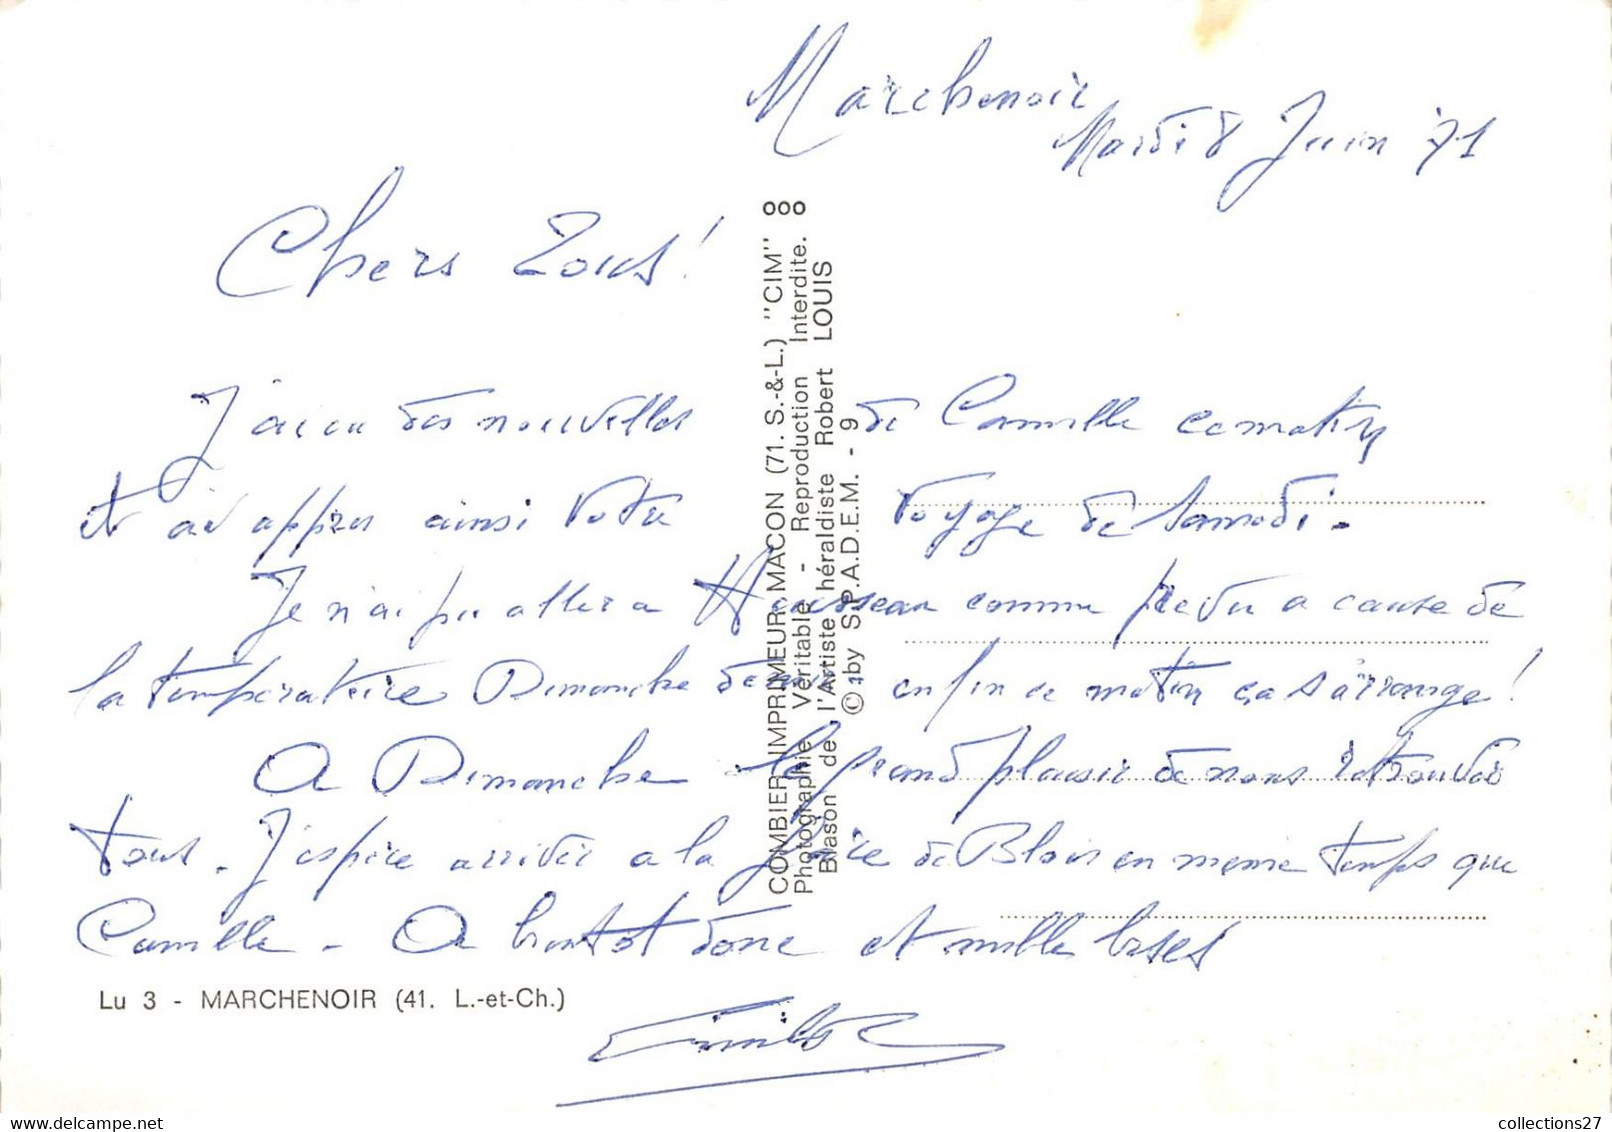 Marchenoir
Mardi 8 Juin 71
Chers Tous !
J'ai eu des nouvelles de Camille ce matin
et ai appris ainsi votre voyage de Samedi.
Je n'ai pu aller à comme prévu a cause de
la température Dimanche dernier enfin ce matin ça s'arrange !
A Dimanche le grand plaisir de nous retrouver
tous. J'espère arriver a la foire de Blois en meme temps que
Camille - A bientot donc et mille bises
Emile
COMBIER IMPRIMEUR MACON (71. S.-&-L.) "CIM"
Photographie Véritable - Reproduction Interdite.
Blason de l'Artiste héraldiste Robert LOUIS
© by S.P.A.D.E.M. - 9
Lu 3 - MARCHENOIR (41. L.-et-Ch.)
collections27